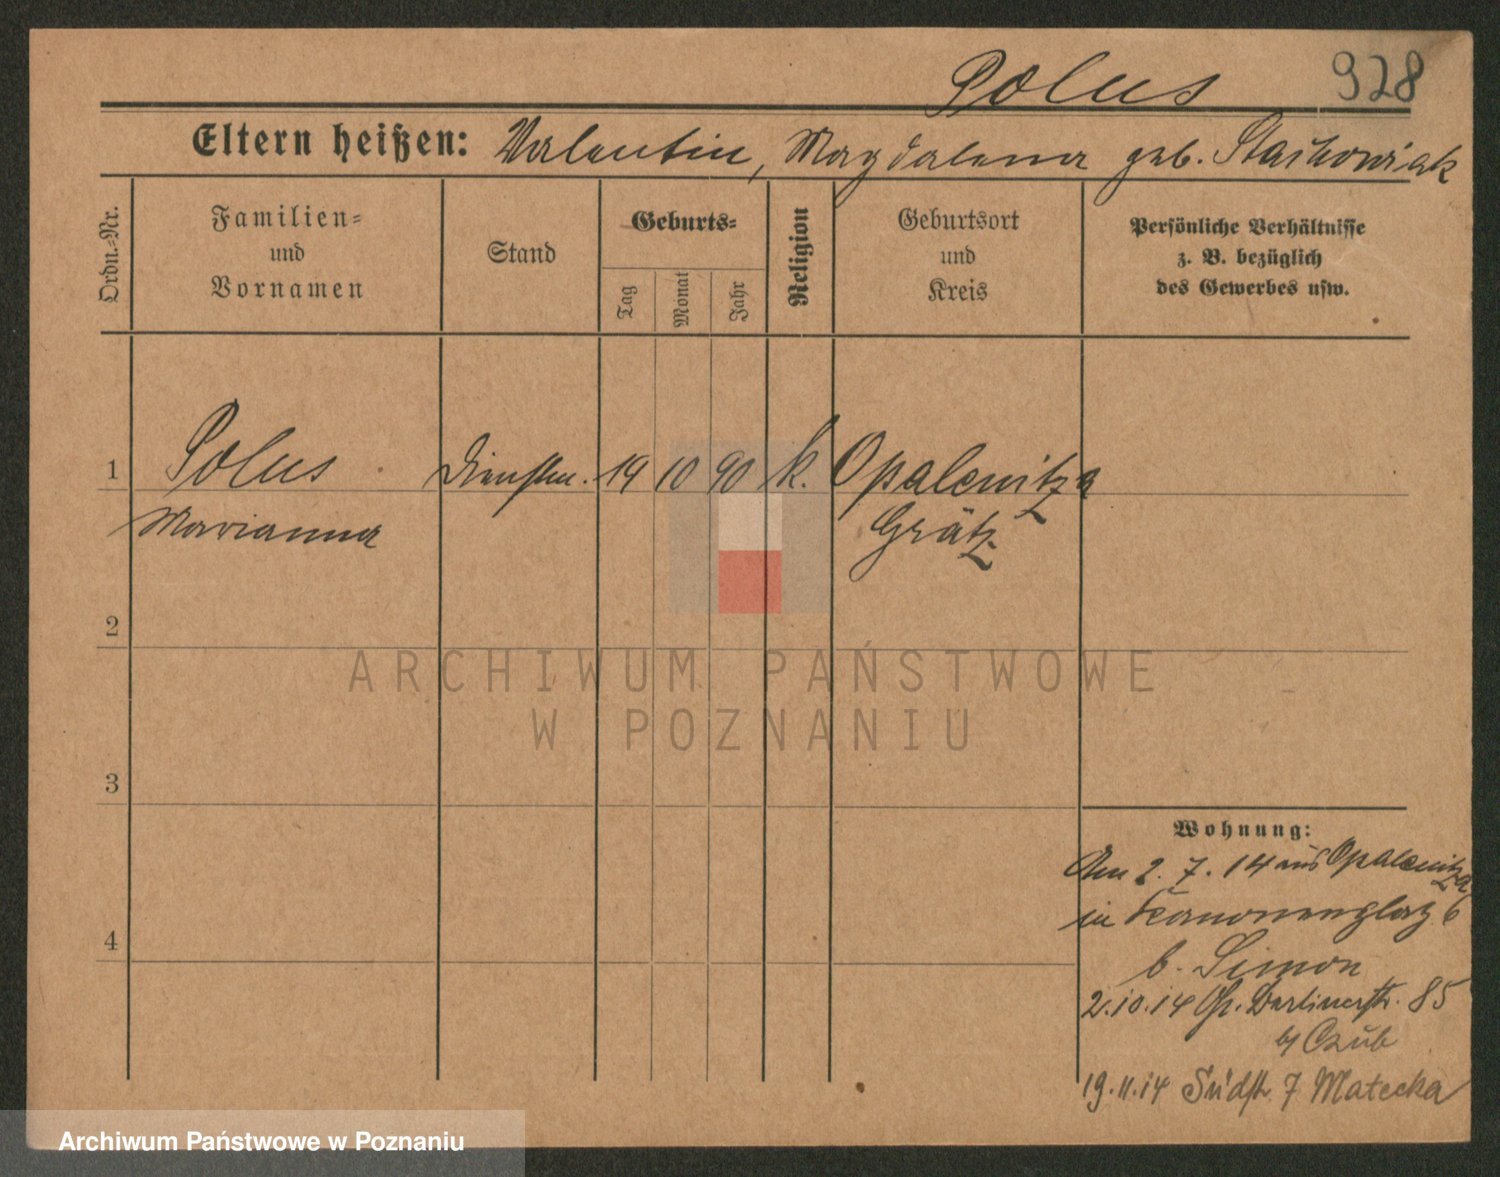 Polus 928
Eltern heißen: Valentin, Magdalena geb. Stachowiak
Ordn.-Nr.
Familien-
und
Vornamen
Stand
Geburts-
Tag
Monat
Jahr
Religion
Geburtsort
und
Kreis
Persönliche Verhältnisse
z. B. bezüglich
des Gewerbes usw.
1 Polus Dienstm. 19 10 90 k. Opalenitza
Marianna Grätz
2
3
4
Wohnung:
Am 2. 7. 14 aus Opalenitza
in Kanonenplatz 6
b. Simon
2.10.14 Gr. Berlinerstr. 85
by Czub
19.11.14 Südstr. 7 Matecka
ARCHIWUM PAŃSTWOWE
W POZNANIU
Archiwum Państwowe w Poznaniu